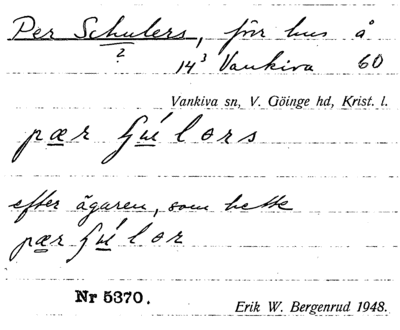 Per Schulers, förr hus å
2
14³ Vankiva 60
Vankiva sn, V. Göinge hd, Krist. l.
pær ʃú lərs
efter ägaren, som hette
pær ʃú lər
Nr 5370.
Erik W. Bergenrud 1948.